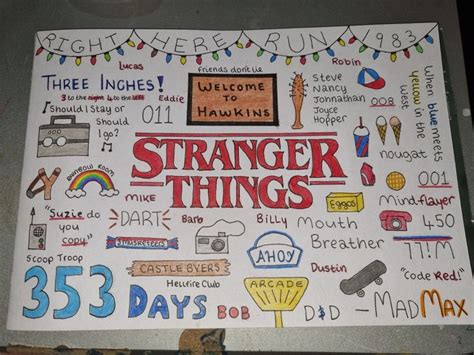 RIGHT HERE RUN 1983
Lucas
Friends don't lie
Robin
THREE INCHES!
3 to the right 4 to the left
Eddie
011
WELCOME
TO
HAWKINS
Steve
Nancy
Jonnathan
Joyce
Hopper
008
When blue meets
yellow in the
west
Should I Stay or
Should I
go?
STRANGER
THINGS
nougat
RAINBOW ROOM
MIKE
Eggos
001
Mind-flayer
"Suzie do
you
copy"
DART
Barb
Billy
Mouth
Breather
450
3 MUSKETEERS
AHOY
??!M
Scoop Troop
CASTLE BYERS
Dustin
"Code Red!"
353
DAYS
Hellfire Club
BOB
ARCADE
D&D
-MADMAX